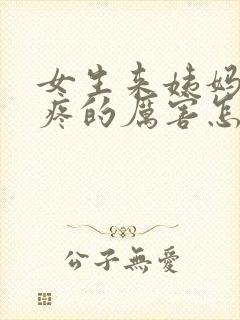 女生来姨妈
疼的厉害怎
公子無愛